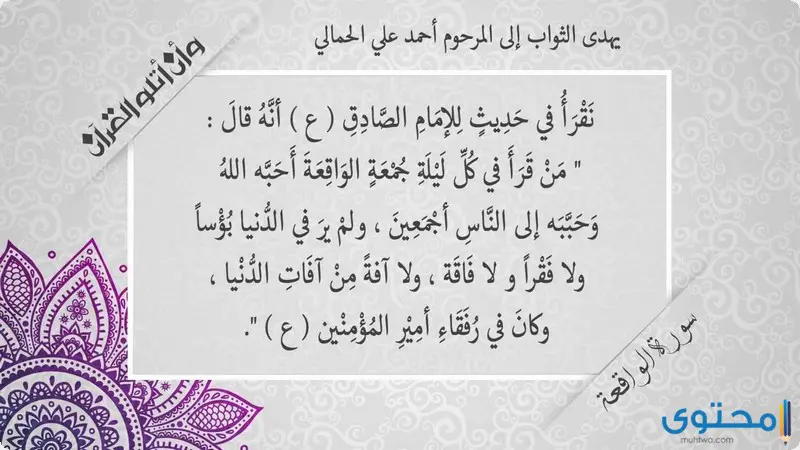 يهدى الثواب إلى المرحوم أحمد علي الحمالي
وأن أتلو القرآن
نَقْرَأُ في حَدِيثٍ لِلإمَامِ الصَّادِقِ ( ع ) أنَّهُ قالَ :
" مَنْ قَرَأَ في كُلِّ لَيْلَةِ جُمْعَةٍ الوَاقِعَةَ أَحَبَّه اللهُ
وَحَبَّبَه إلى النَّاسِ أجْمَعِينَ ، ولمْ يرَ في الدُّنيا بُؤْساً
ولا فَقْراً و لا فَاقَة ، ولا آفةً مِنْ آفَاتِ الدُّنْيا ،
وكانَ في رُفَقَاءِ أمِيْرِ المُؤْمِنْين ( ع ) ".
سورة الواقعة
محتوى
muhtwa.com